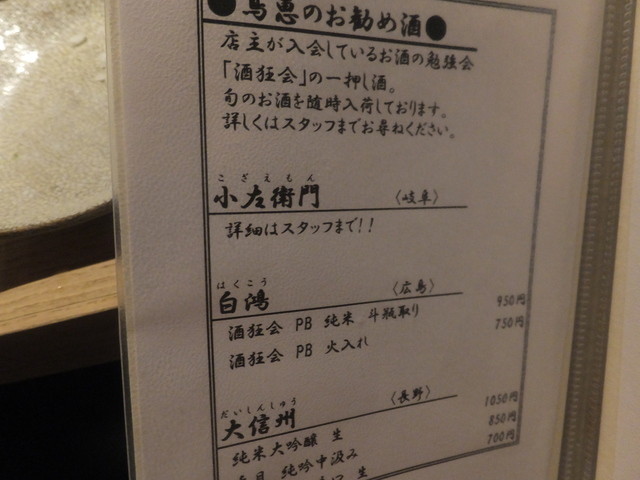 ●鳥恵のお勧め酒●
店主が入会しているお酒の勉強会
「酒狂会」の一押し酒。
旬のお酒を随時入荷しております。
詳しくはスタッフまでお尋ねください。
こざえもん
小左衛門 〈岐阜〉
詳細はスタッフまで!!
はくこう
白鴻 〈広島〉
酒狂会 PB 純米 斗瓶取り 950円
酒狂会 PB 火入れ 750円
だいしんしゅう
大信州 〈長野〉
純米大吟醸 生 1050円
純吟中汲み 850円
生 700円